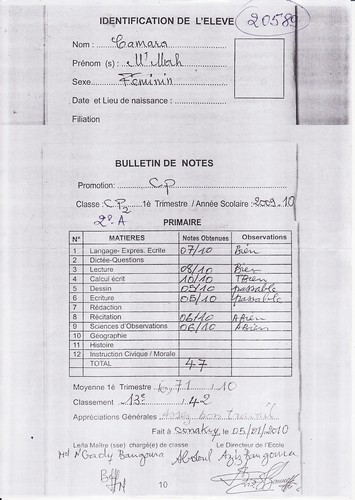 IDENTIFICATION DE L'ELEVE 20589
Nom : Camara
Prénom (s) : M'Mah
Sexe Féminin
Date et Lieu de naissance :
Filiation
BULLETIN DE NOTES
Promotion: CP
Classe : CP2 1è Trimestre / Année Scolaire : 2009-10
2è A
PRIMAIRE
N° MATIERES Notes Obtenues Observations
1 Langage- Expres. Ecrite 07/10 Bien
2 Dictée-Questions
3 Lecture 08/10 Bien
4 Calcul écrit 10/10 TBien
5 Dessin 05/10 passable
6 Ecriture 05/10 passable
7 Rédaction
8 Récitation 06/10 ABien
9 Sciences d'Observations 06/10 ABien
10 Géographie
11 Histoire
12 Instruction Civique / Morale
TOTAL 47
Moyenne 1è Trimestre 6,71 / 10
Classement 13è / 42
Appréciations Générales Assez bon travail
Fait à Conakry, le 05/01/2010
Le/la Maître (sse) chargé(e) de classe Le Directeur de l'Ecole
Bangoura Abdoul Aziz Bangoura
10